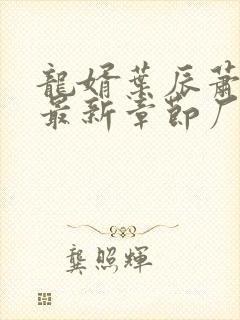 龍婿葉辰蕭
最新章節厂
龔照輝